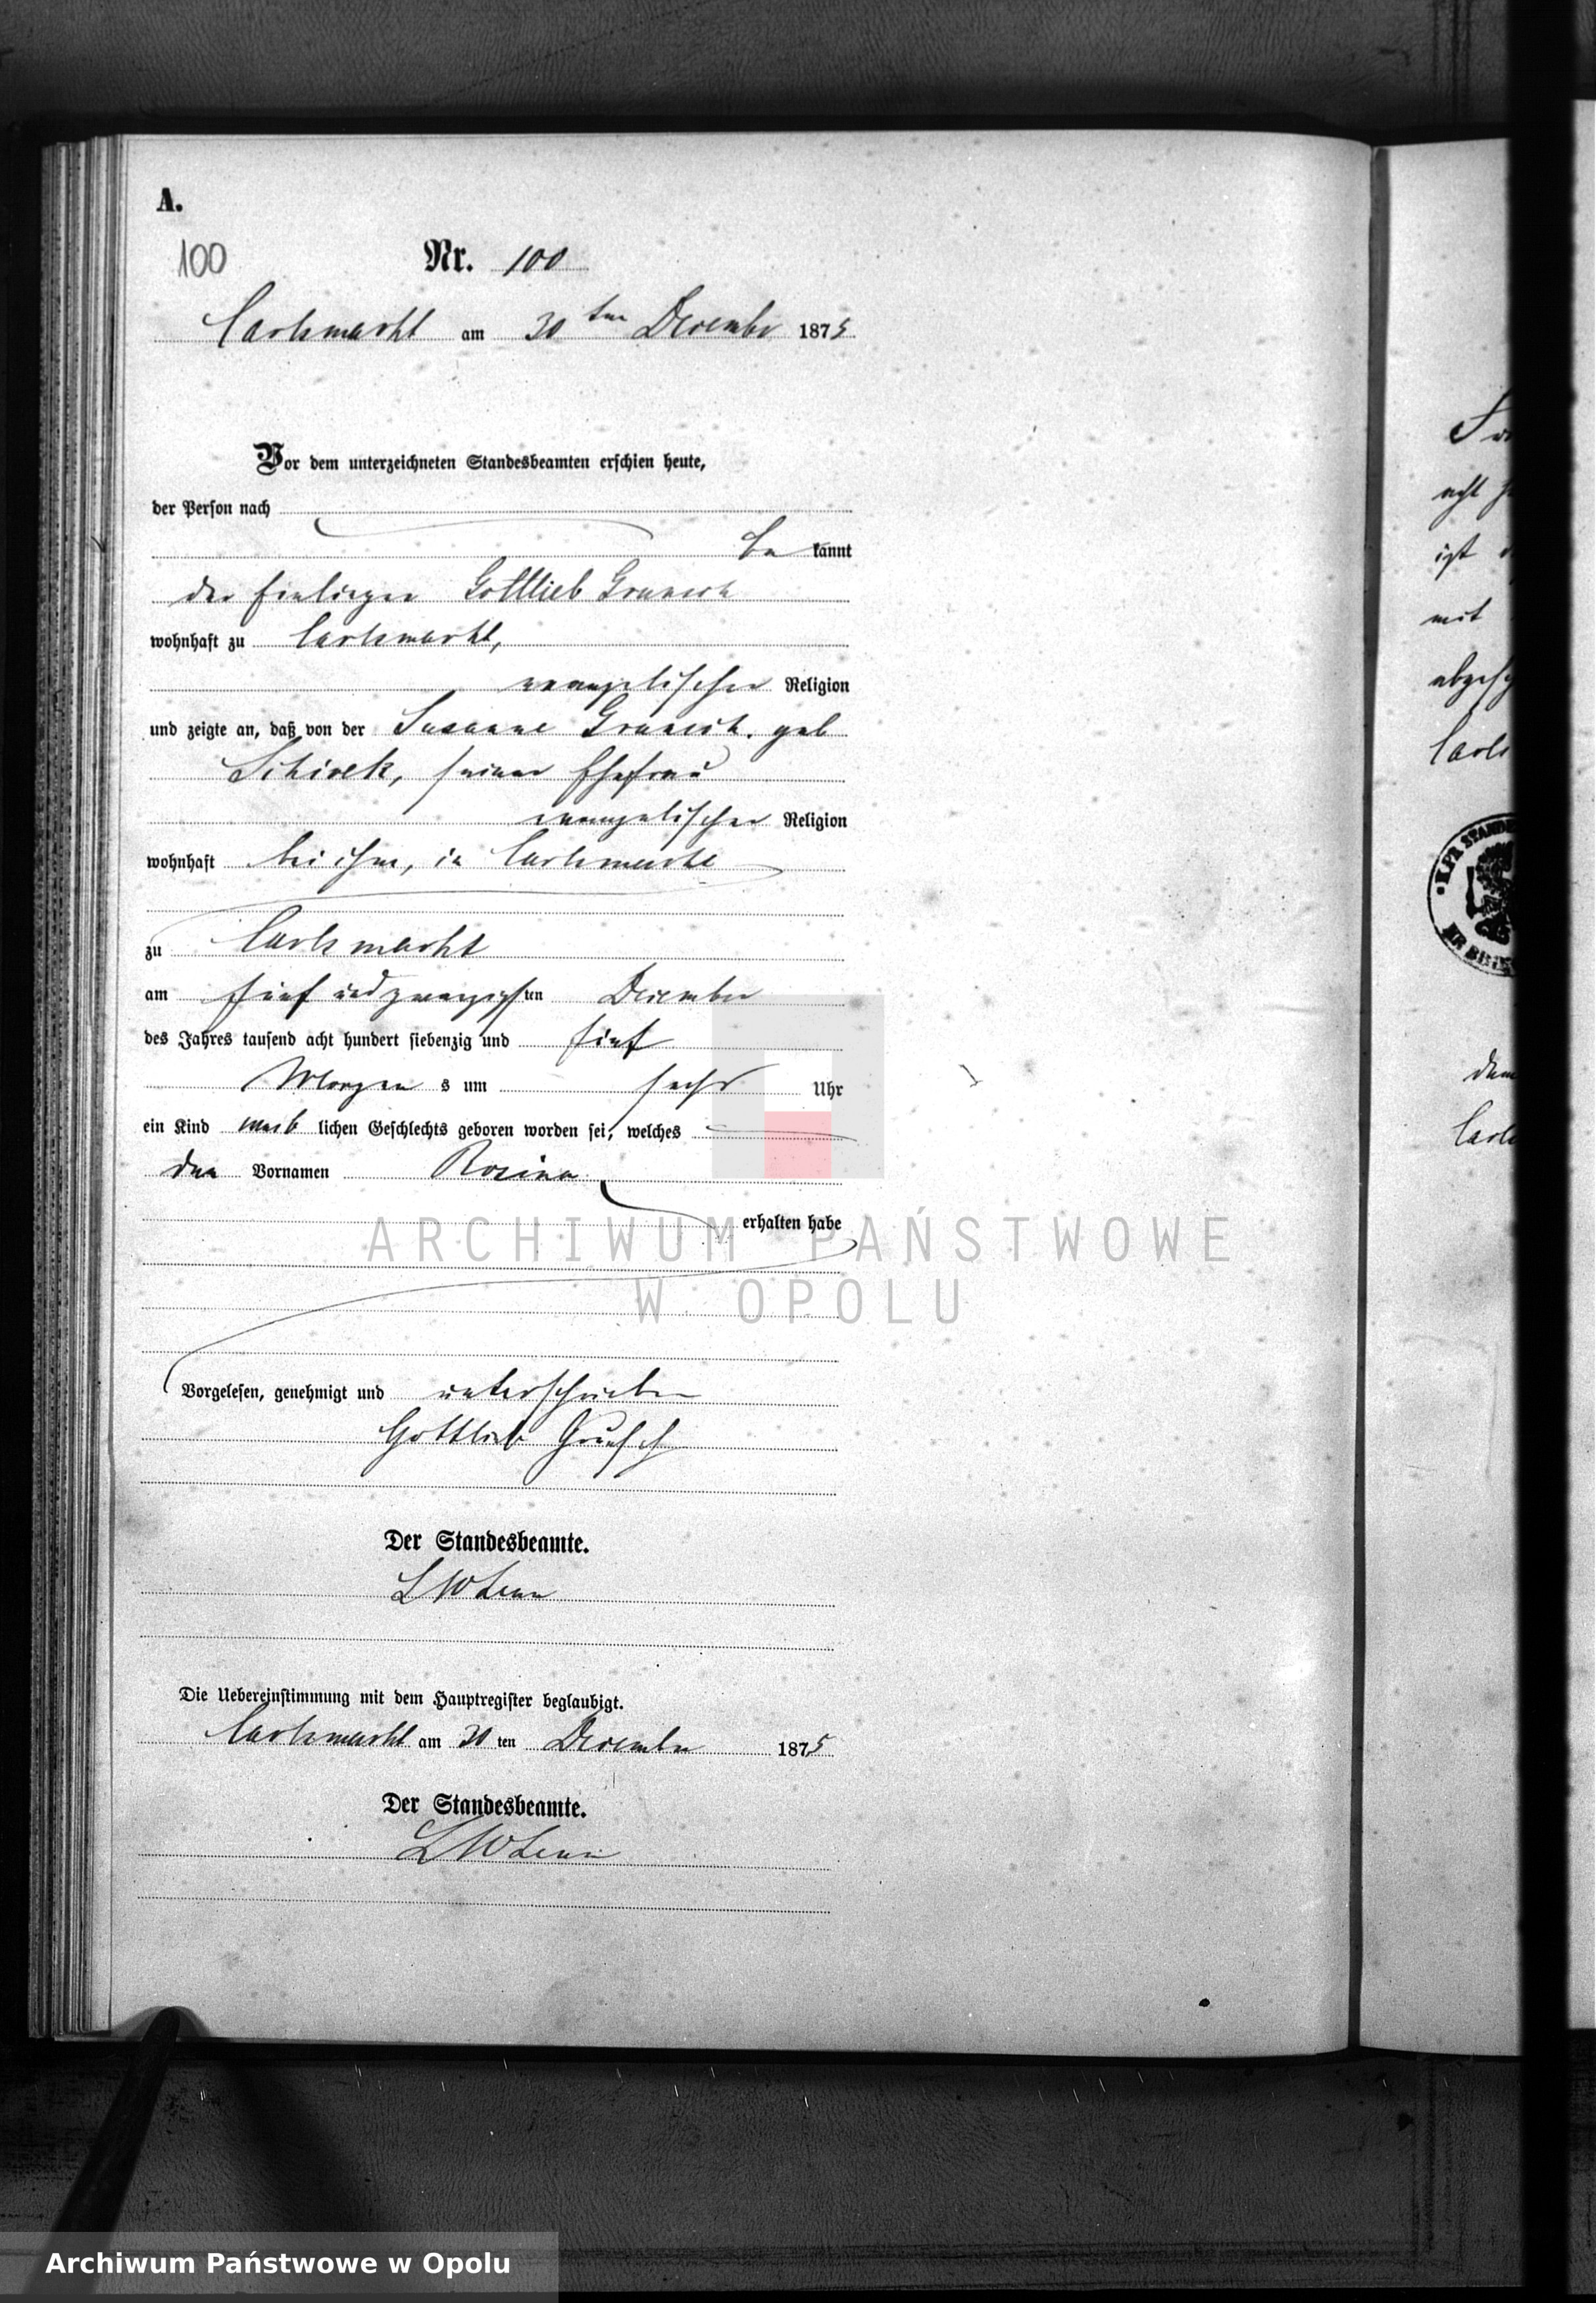 A.
100
Nr. 100
Carlsmarkt am 30 ten December 1875
Vor dem unterzeichneten Standesbeamten erschien heute,
der Person nach
be kannt
der Einlieger Gottlieb
wohnhaft zu Carlsmarkt,
evangelischer Religion
und zeigte an, daß von der Susanne geb
Schirek, seiner Ehefrau
evangelischer Religion
wohnhaft bei ihm, in Carlsmarkt
zu Carlsmarkt
am fünf und zwanzigsten December
des Jahres tausend acht hundert siebenzig und fünf
Morgen s um sechs Uhr
ein Kind weib lichen Geschlechts geboren worden sei, welches
den Vornamen Rosina
erhalten habe
Vorgelesen, genehmigt und unterschrieben
Gottlieb
Der Standesbeamte.
Die Uebereinstimmung mit dem Hauptregister beglaubigt.
Carlsmarkt am 30 ten December 1875
Der Standesbeamte.
ist
mit
ARCHIWUM PAŃSTWOWE
W OPOLU
Archiwum Państwowe w Opolu